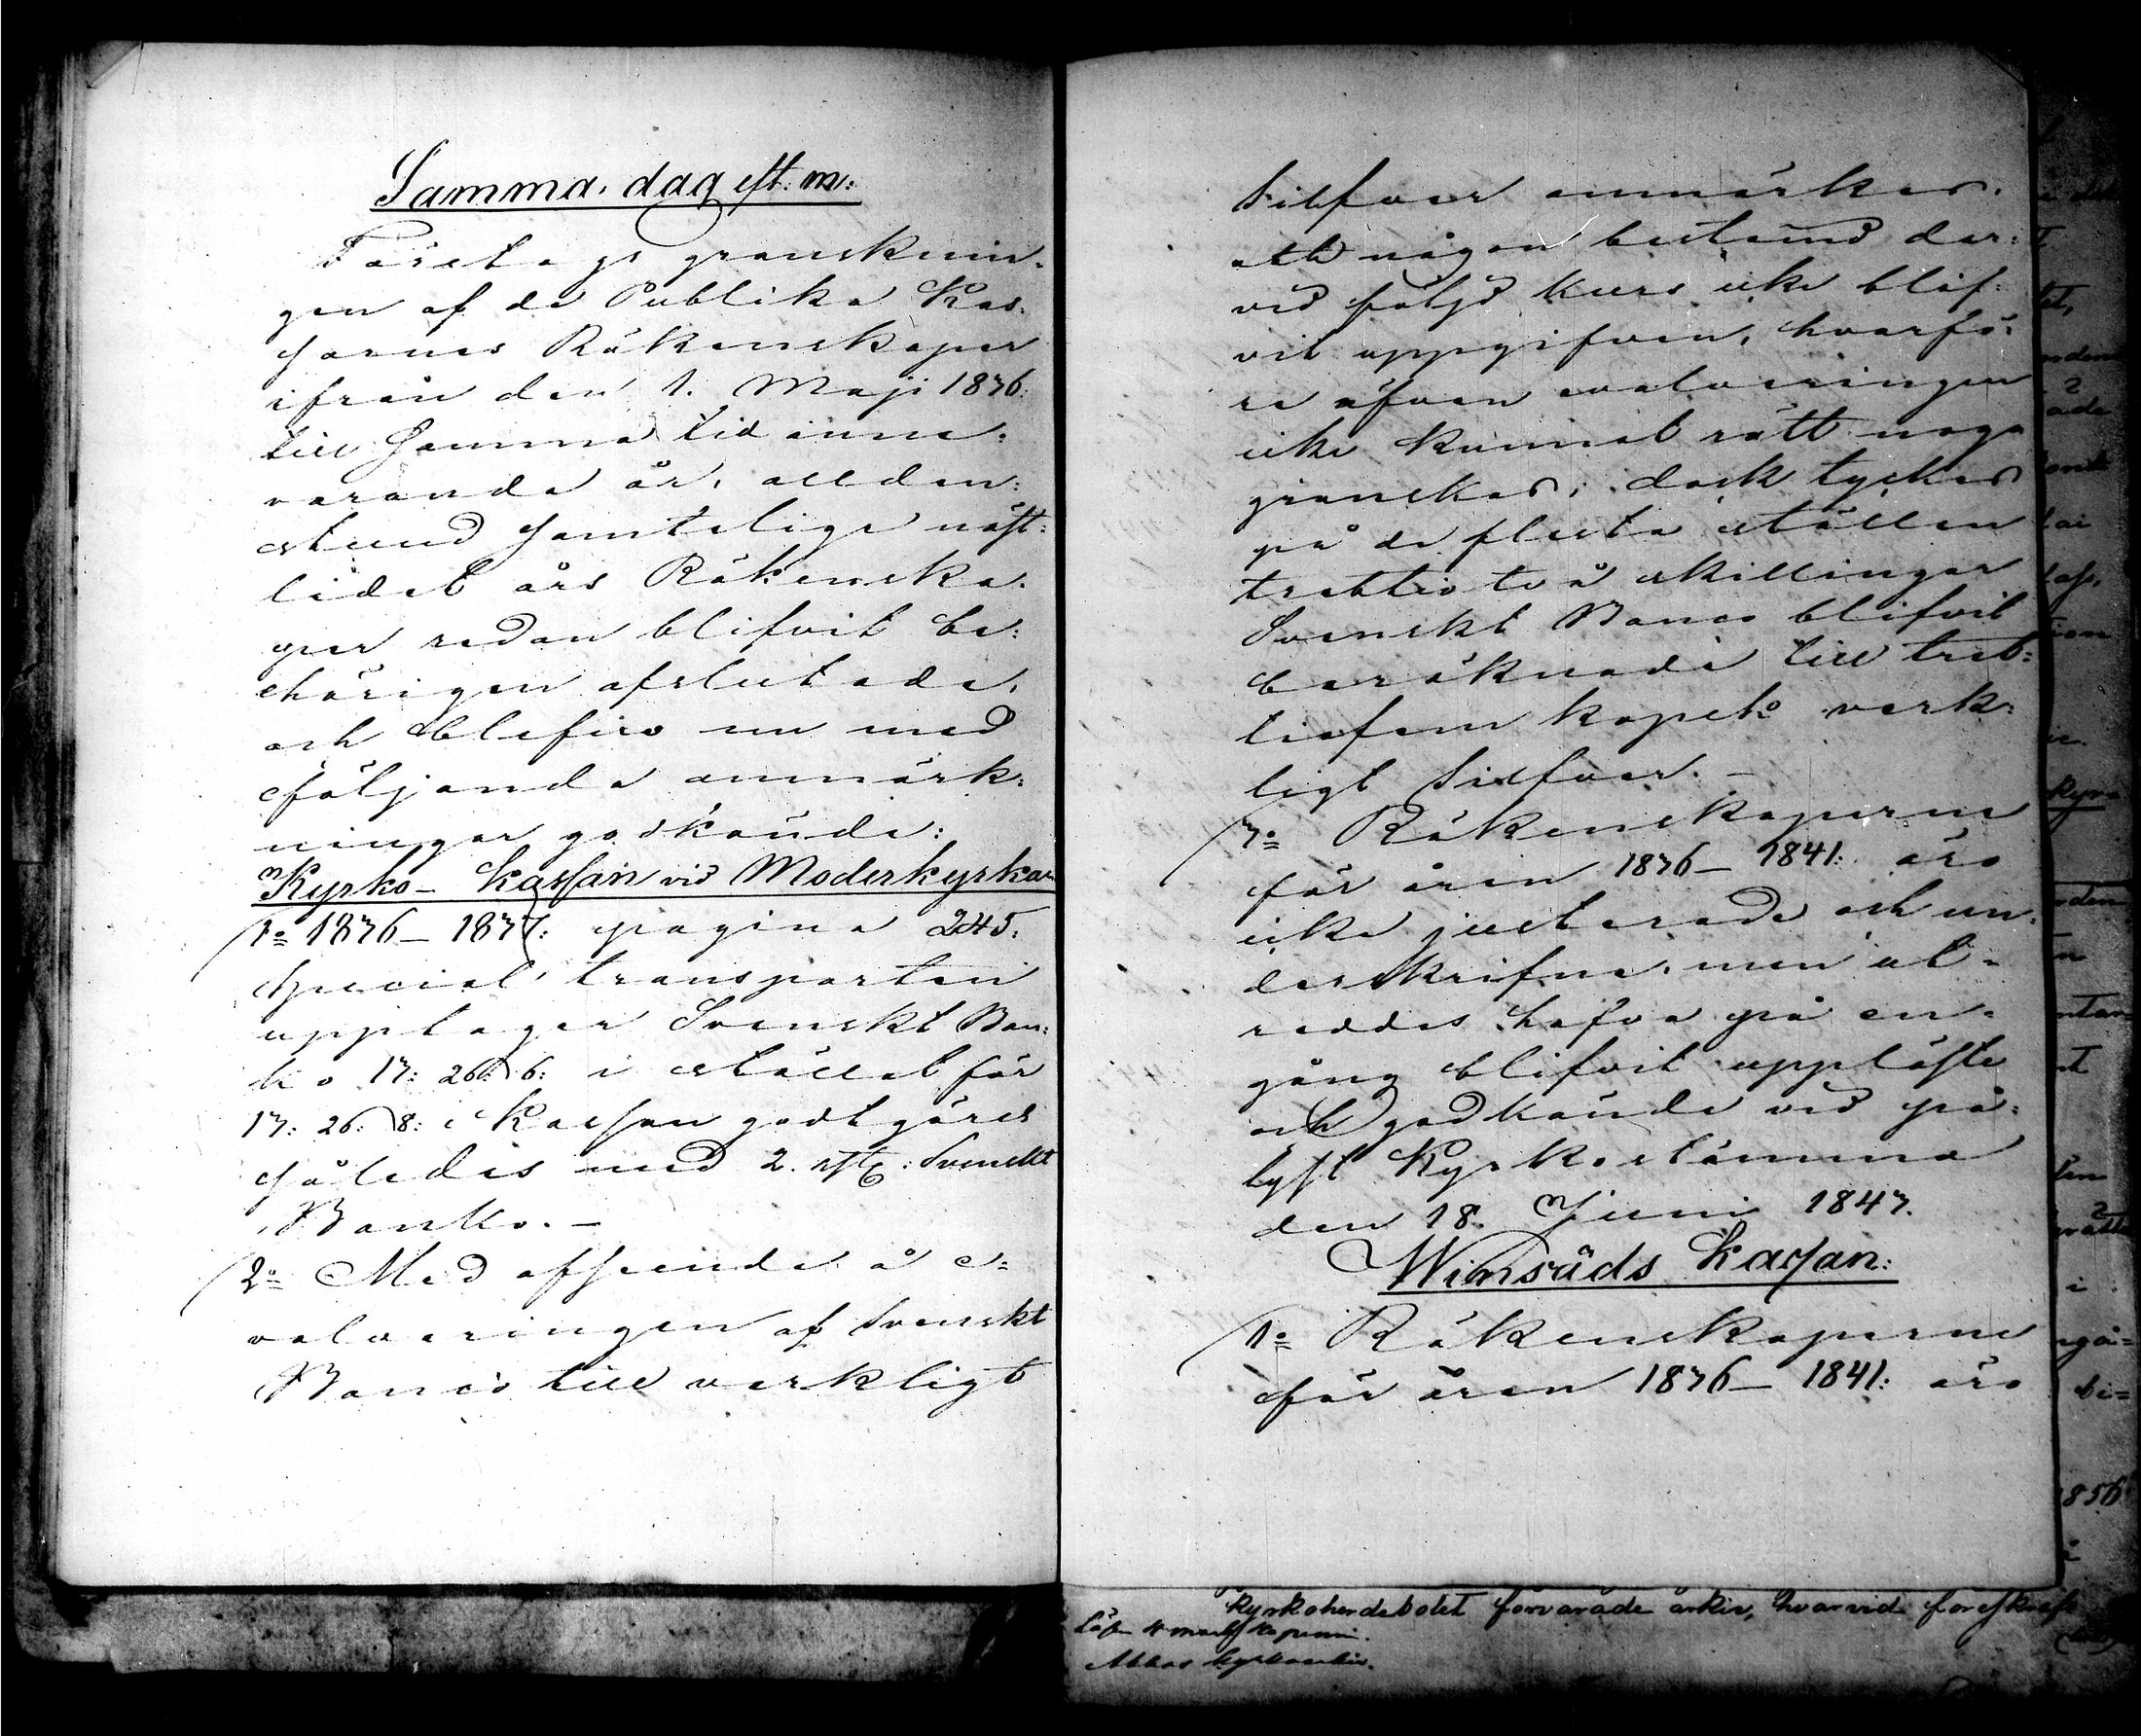 Samma dag eft: m:
Företogs gransknin-
gen af de Publika Kas-
sornes Räkenskaper
ifrån den 1. Maji 1836.
till samma tid inne-
varande år, allden-
stund samtelige näst-
lidet års Räkenska-
per redan blifvit be-
hörigen afslutade,
och blefvo nu med
följande anmärk-
ningar godkände:
Kyrko- Kassan vid Moderkyrkan
1o 1836 – 1837: pagina 245.
Special transporten
upptager Svenskt Ban-
ko 13: 26: 6: i stället för
13: 26: 8: Kassan godtgöres
således med 2. rst: Svenskt
Banko. –
2o Med afseende å e-
valveringen af Svenskt
Banco till verkligt
Silfver anmärkes,
att någon bestämd der-
vid följd kurs icke blif-
vit uppgifven, hvarfö-
re äfven evalveringen
icke kunnat rätt noga
granskas; dock tyckes
på de flesta ställen
trettio två skillingar
Svenskt Banco blifvit
beräknade till tret-
tiofem kopek verk-
ligt Silfver. –
3o Räkenskaperne
för åren 1836 – 1841: äro
icke justerade och un-
derskrifne, men ut-
reddes hafva på en-
gång blifvit uppläste
och godkände vid på-
lyst Kyrkostämma
den 18. Juni 1843.
Winsäds Kassan:
1o Räkenskaperne
för åren 1836 – 1841: äro
1856
kyrkoherdebolet förvarade arkiv, hvarvid föreskrift